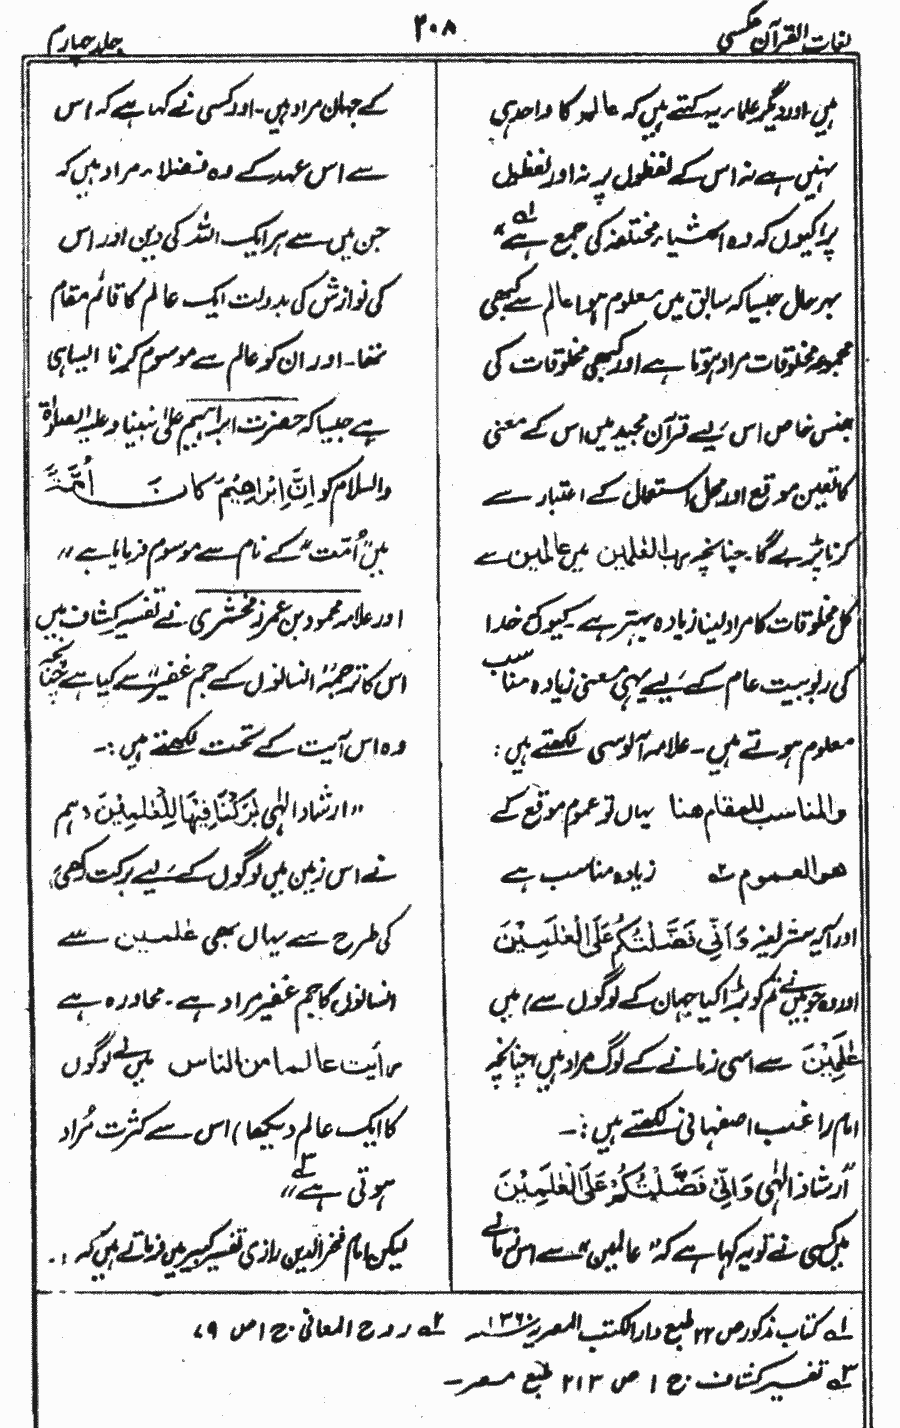 لغات القرآن عکسی
۲۰۸
جلد چہارم
ہیں۔ اور دیگر علماء یہ کہتے ہیں کہ عالمہ کا واحد ہی
نہیں ہے نہ اس کے لفظوں پر نہ اور لفظوں
پر کیوں کہ وہ اشیاء مختلفہ کی جمع ہے" ۱ے
بہر حال جیسا کہ سابق میں معلوم ہوا عالم سے کبھی
مجموعہ مخلوقات مراد ہوتا ہے اور کبھی مخلوقات کی
جنس خاص اس لیے قرآن مجید میں اس کے معنی
کا تعین موقع اور محل استعمال کے اعتبار سے
کرنا پڑے گا۔ چنانچہ رب العٰلمین میں عالمین سے
کل مخلوقات کا مراد لینا زیادہ بہتر ہے۔ کیوں کہ خدا
کی ربوبیت عام کے لیے یہی معنی زیادہ مناسب
معلوم ہوتے ہیں۔ علامہ آلوسی لکھتے ہیں :
والمناسب للمقام هنا یہاں تو عموم موقع کے
هو العموم ۲ے زیادہ مناسب ہے
اور آیہ شریفہ وَاَنِّی فَضَّلْتُكُمْ عَلَی الْعٰلَمِیْنَ
اور وہ جو میں نے تم کو بڑا کیا جہان کے لوگوں سے) میں
عٰلَمِیْنَ سے اسی زمانے کے لوگ مراد ہیں، چنانچہ
امام راغب اصفہانی لکھتے ہیں :۔
"ارشاد الٰہی وَاَنِّیْ فَضَّلْتُكُمْ عَلَی الْعٰلَمِیْنَ
میں کسی نے تو یہ کہا ہے کہ "عالمین" سے اس زمانے
کے جہان مراد ہیں۔ اور کسی نے کہا ہے کہ اس
سے اس عہد کے وہ فضلاء مراد ہیں کہ
جن میں سے ہر ایک اللہ کی دین اور اس
کی نوازش کی بدولت ایک عالم کا قائم مقام
تھا۔ اور ان کو عالم سے موسوم کرنا ایسا ہی
ہے جیسا کہ حضرت ابراہیم علیٰ نبینا و علیہ الصلوٰۃ
والسلام کو اِنَّ اِبْرَاهِیْمَ كَانَ اُمَّةً
میں "اُمّت" کے نام سے موسوم فرمایا ہے"
اور علامہ محمود بن عمر زمخشری نے تفسیر کشاف میں
اس کا ترجمہ "انسانوں کے جم غفیر" سے کیا ہے چنانچہ
وہ اس آیت کے تحت لکھتے ہیں :۔
"ارشاد الٰہی بٰرَكْنَا فِیْهَا لِلْعٰلَمِیْنَ (ہم
نے اس زمین میں لوگوں کے لیے برکت رکھی)
کی طرح سے یہاں بھی عٰلمین سے
انسانوں کا جم غفیر مراد ہے۔ محاورہ ہے
رأیت عالما من الناس (میں نے لوگوں
کا ایک عالم دیکھا) اس سے کثرت مُراد
ہوتی ہے" ۳ے
لیکن امام فخرالدین رازی تفسیر کبیر میں فرماتے ہیں کہ :۔
۱ے کتاب مذکور ص ۲۲ طبع دار الکتب المصریہ ۱۳۶۰ ۲ے روح المعانی ج ۱ ص ۷۹
۳ے تفسیر کشاف ج ۱ ص ۲۱۳ طبع مصر۔